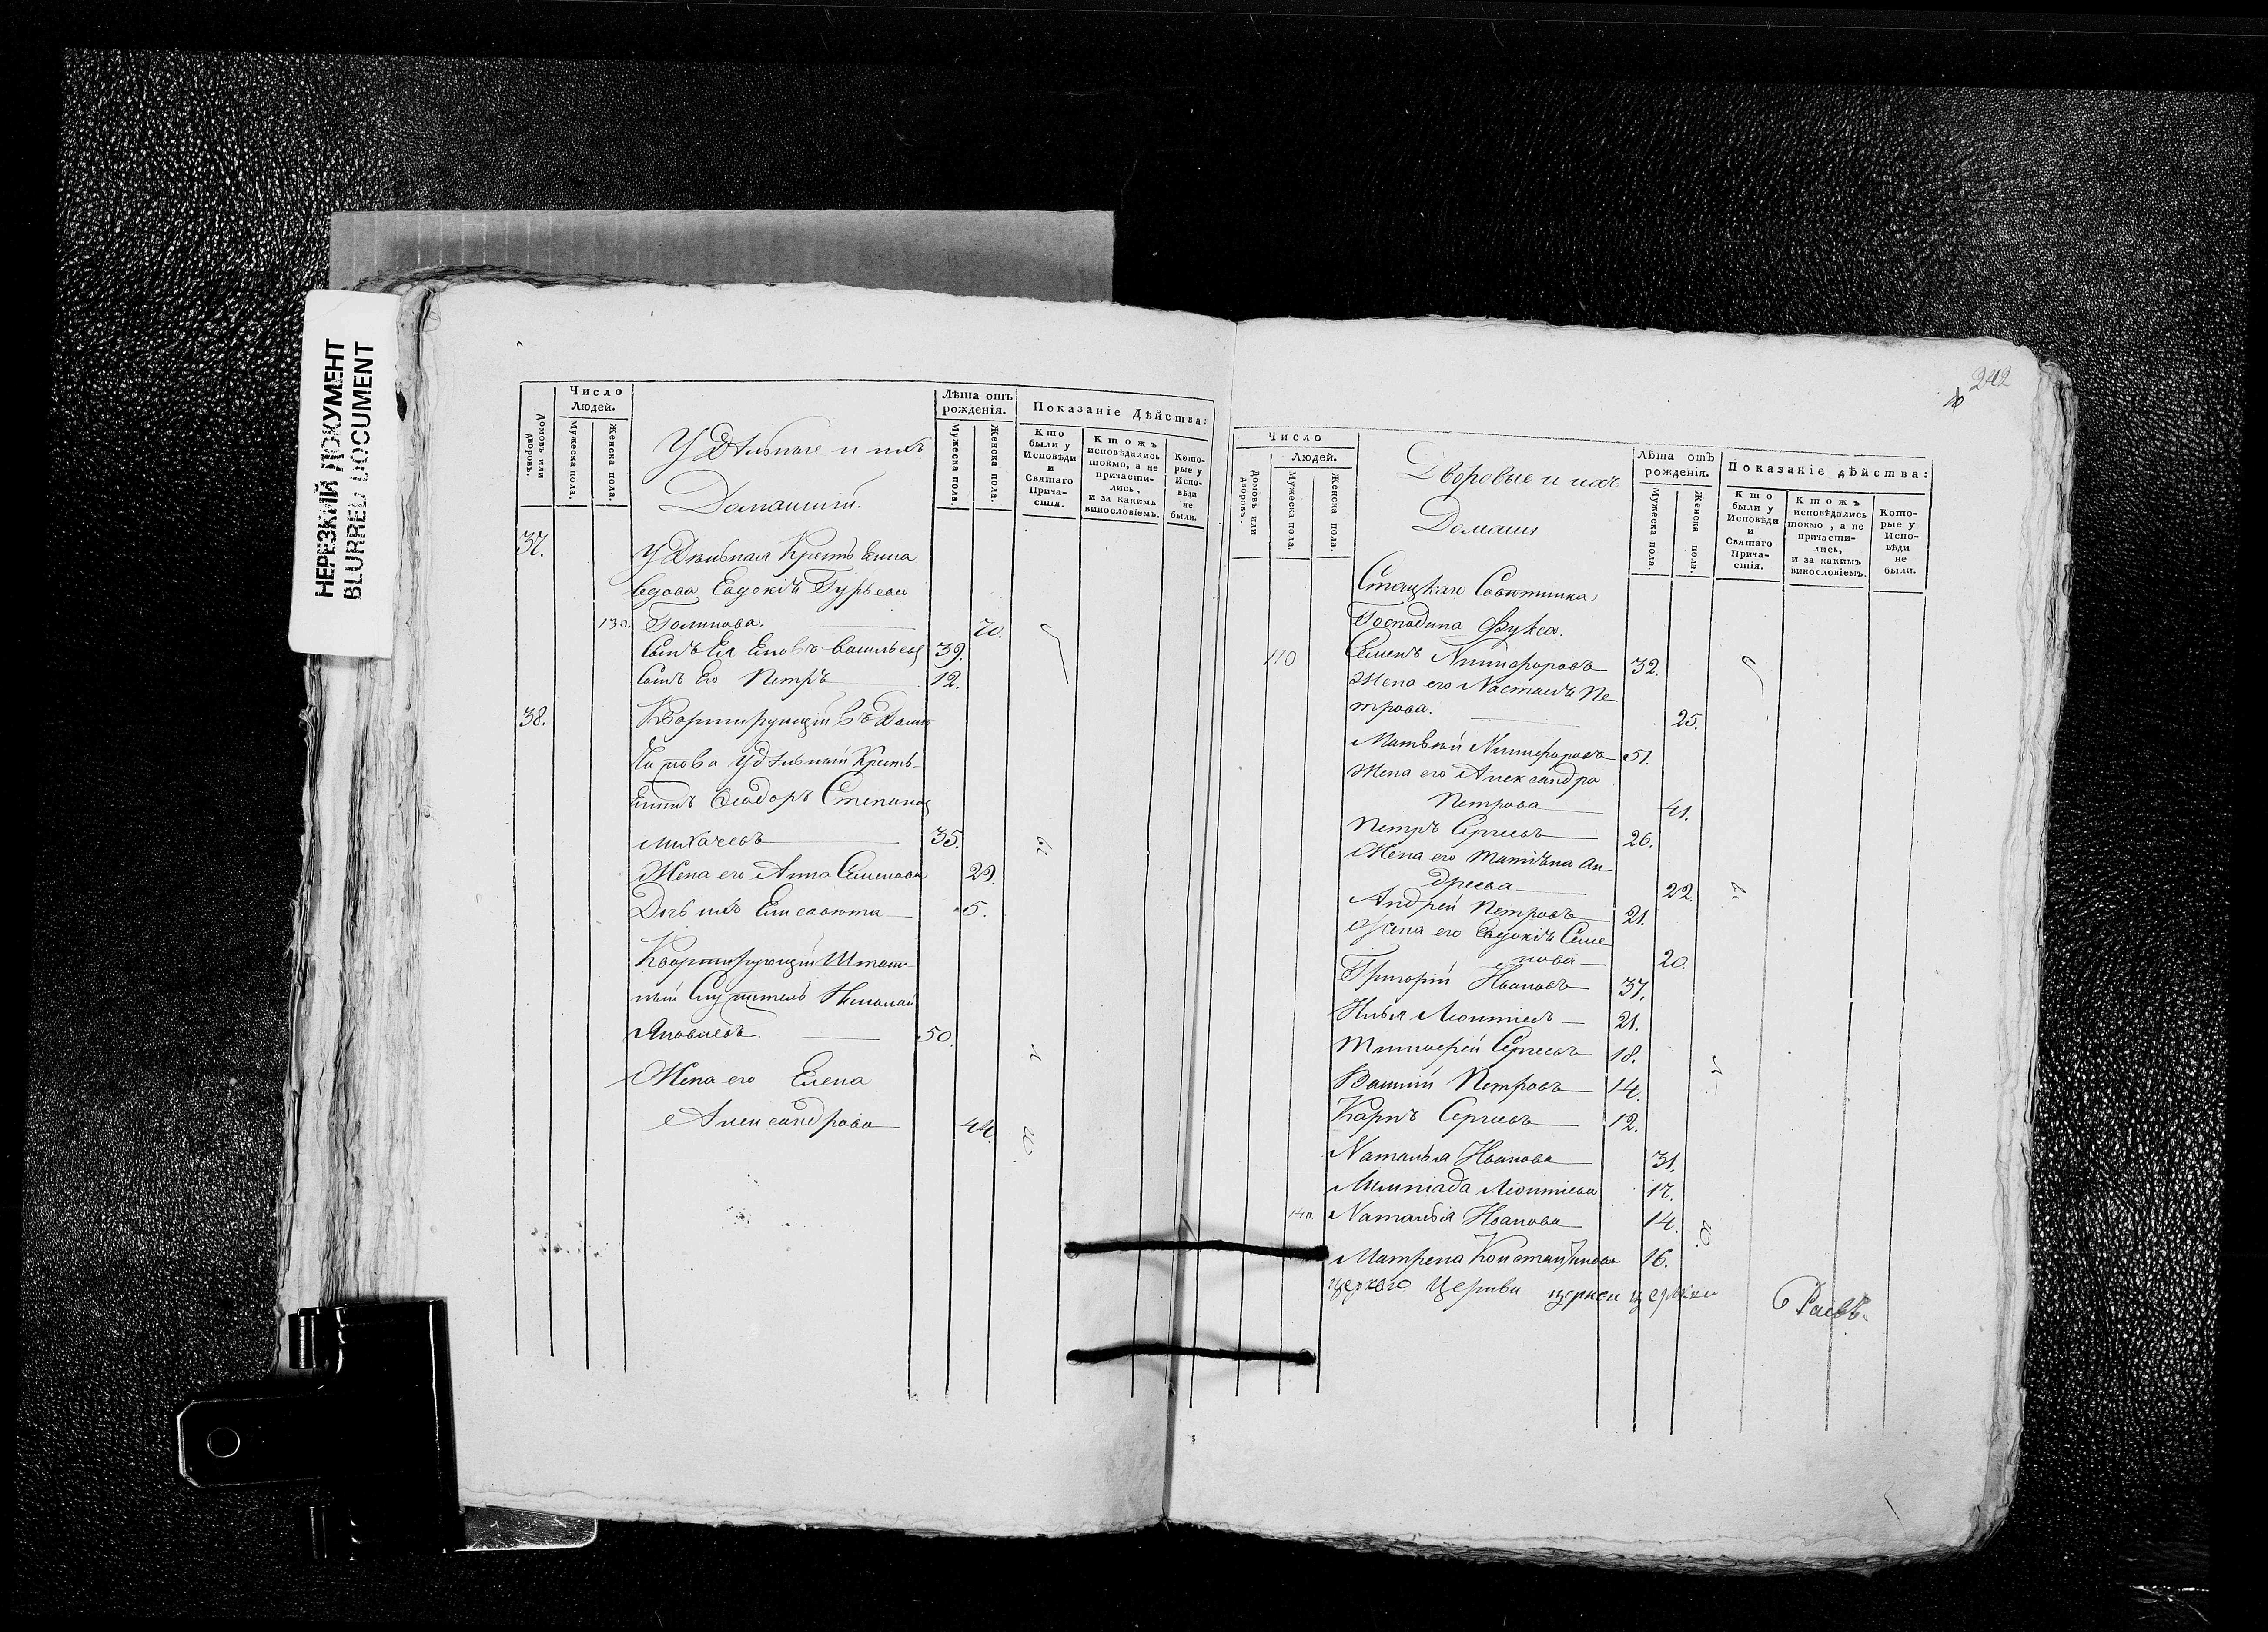 НЕРЕЗКИЙ ДОКУМЕНТ
BLURRED DOCUMENT
Число
Людей.
Домовъ или дворовъ.
Мужеска пола.
Женска пола.
Удѣльные и ихъ
Домашнiи.
Лѣта отъ рожденія.
Мужеска пола.
Женска пола.
Показаніе Дѣйства:
Кто были у Исповѣди и Святаго Причастія.
Ктожъ исповѣдались токмо, а не причастились, и за какимъ винословіемъ.
Которые у Исповѣди не были.
37.
Удѣльная Крестьянка
вдова Евдокія Гурьева
130. 70.
Сынъ Ея Васильевъ 39.
Сынъ Его Петръ 12.
38.
Квартирующiй въ Домѣ
Удѣльный Кресть-
янинъ Ѳеодоръ Степановъ
Михачевъ 35.
Жена его Анна Семенова 29.
Дочь ихъ Елисавета 5.
Квартирующiй Штат-
ный Служитель Николай
Яковлевъ. 50.
Жена его Елена
Александрова 44.
242
Число
Людей.
Домовъ или дворовъ.
Мужеска пола.
Женска пола.
Дворовые и ихъ
Домаши
Лѣта отъ рожденія.
Мужеска пола.
Женска пола.
Показаніе дѣйства:
Кто были у Исповѣди и Святаго Причастія.
Ктожъ исповѣдались токмо, а не причастились, и за какимъ винословіемъ.
Которые у Исповѣди не были.
Статскаго Совѣтника
Господина Фукса.
110 Семенъ Никифоровъ 32.
Жена его Настасья Пе
трова. 25.
Матвѣй Никифоровъ 51.
Жена его Александра
Петрова 41.
Петръ Сергѣевъ 26.
Жена его Татiана Ан
дреева 22.
Андрей Петровъ 21.
Жена его Евдокiя Семе
нова 20.
Григорiй Ивановъ 37.
Илья Леонтiевъ 21.
Тимофей Сергѣевъ 18.
Василiй Петровъ 14.
Карпъ Сергѣевъ 12.
Наталья Иванова 31.
Леонтiева 17.
140. Наталья Иванова 14.
Матрена Константинова 16.
Церкви